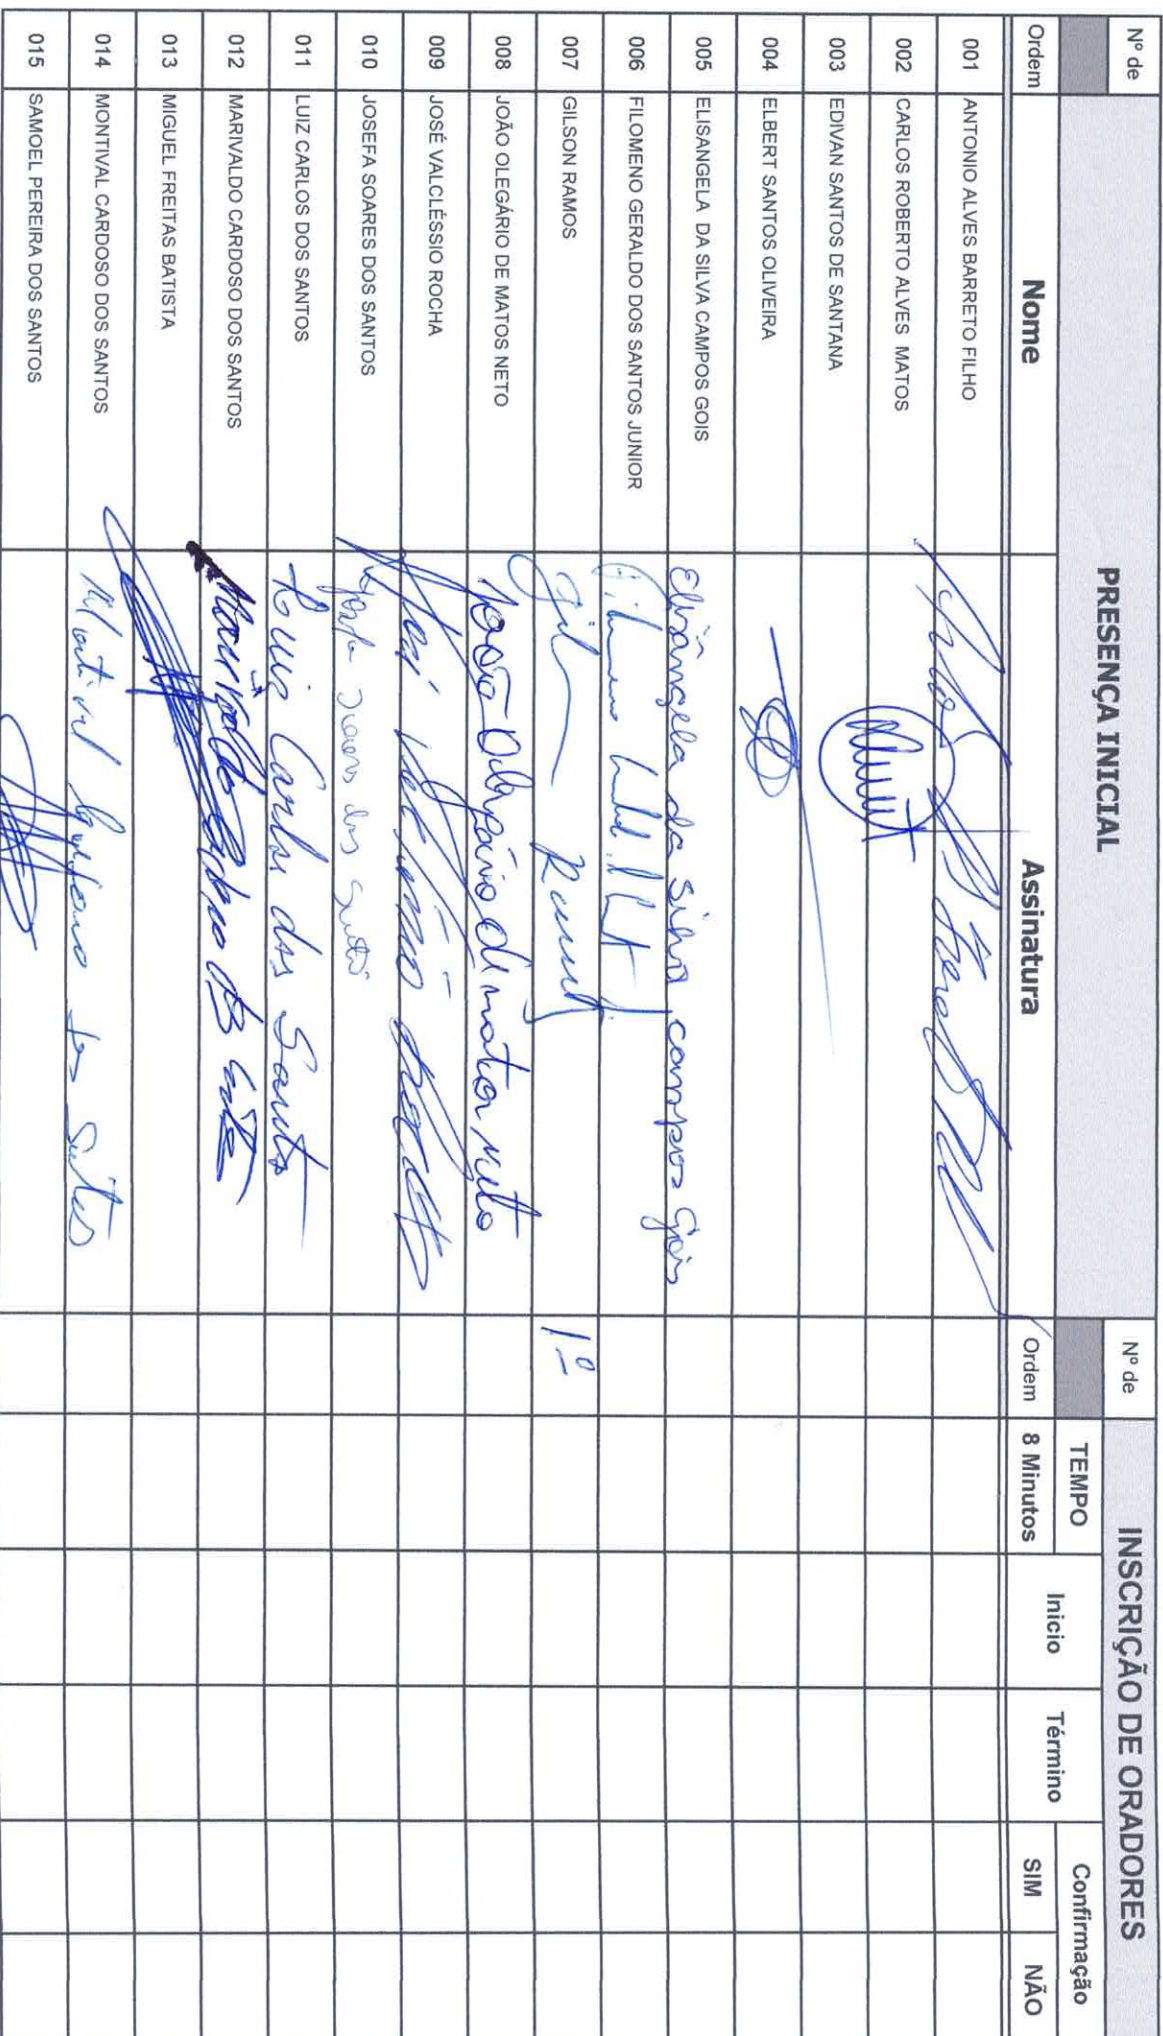 Nº de PRESENÇA INICIAL Nº de INSCRIÇÃO DE ORADORES
TEMPO Confirmação
Ordem Nome Assinatura Ordem 8 Minutos Inicio Término SIM NÃO
001 ANTONIO ALVES BARRETO FILHO
002 CARLOS ROBERTO ALVES MATOS
003 EDIVAN SANTOS DE SANTANA
004 ELBERT SANTOS OLIVEIRA
005 ELISANGELA DA SILVA CAMPOS GOIS Elisângela da Silva Campos Gois
006 FILOMENO GERALDO DOS SANTOS JUNIOR
007 GILSON RAMOS Gilson Ramos 1º
008 JOÃO OLEGÁRIO DE MATOS NETO João Olegário de Matos Neto
009 JOSÉ VALCLÉSSIO ROCHA José Rocha
010 JOSEFA SOARES DOS SANTOS Josefa Soares dos Santos
011 LUIZ CARLOS DOS SANTOS Luiz Carlos dos Santos
012 MARIVALDO CARDOSO DOS SANTOS Marivaldo Cardoso dos
013 MIGUEL FREITAS BATISTA
014 MONTIVAL CARDOSO DOS SANTOS Montival Cardoso dos Santos
015 SAMOEL PEREIRA DOS SANTOS